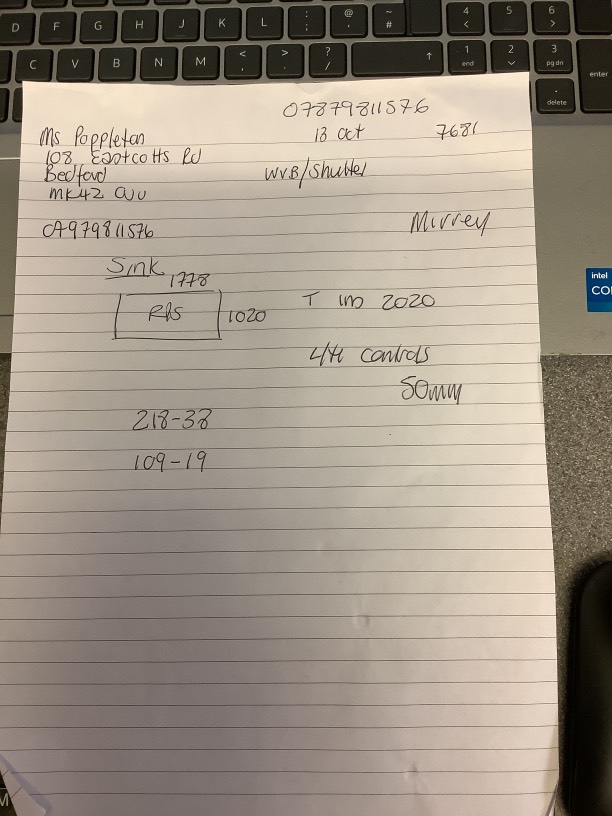 D F G H J K L : ; @ ' ~ # 4 < 5 6 >
C V B N M < , > . ? / ↑ 1 end 2 3 pgdn enter
. delete
07879811576
Ms Poppleton 13 oct 7681
108 Eastcotts Rd
Bedford WVB/Shutter
MK42
Mirrey
Sink
1778
RDS 1020 T 2020
L/H controls
50mm
218-38
109-19
intel
CO
M